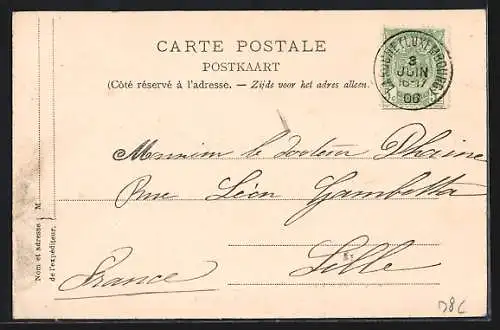 CARTE POSTALE
POSTKAART
(Côté réservé à l'adresse. — Zijde voor het adres alleen.)
(LUXEMBOURG)
3
JUIN
16-17
06
Monsieur le docteur
Rue Léon Gambetta
Lille
France
Nom et adresse M
de l'expéditeur.
D8C